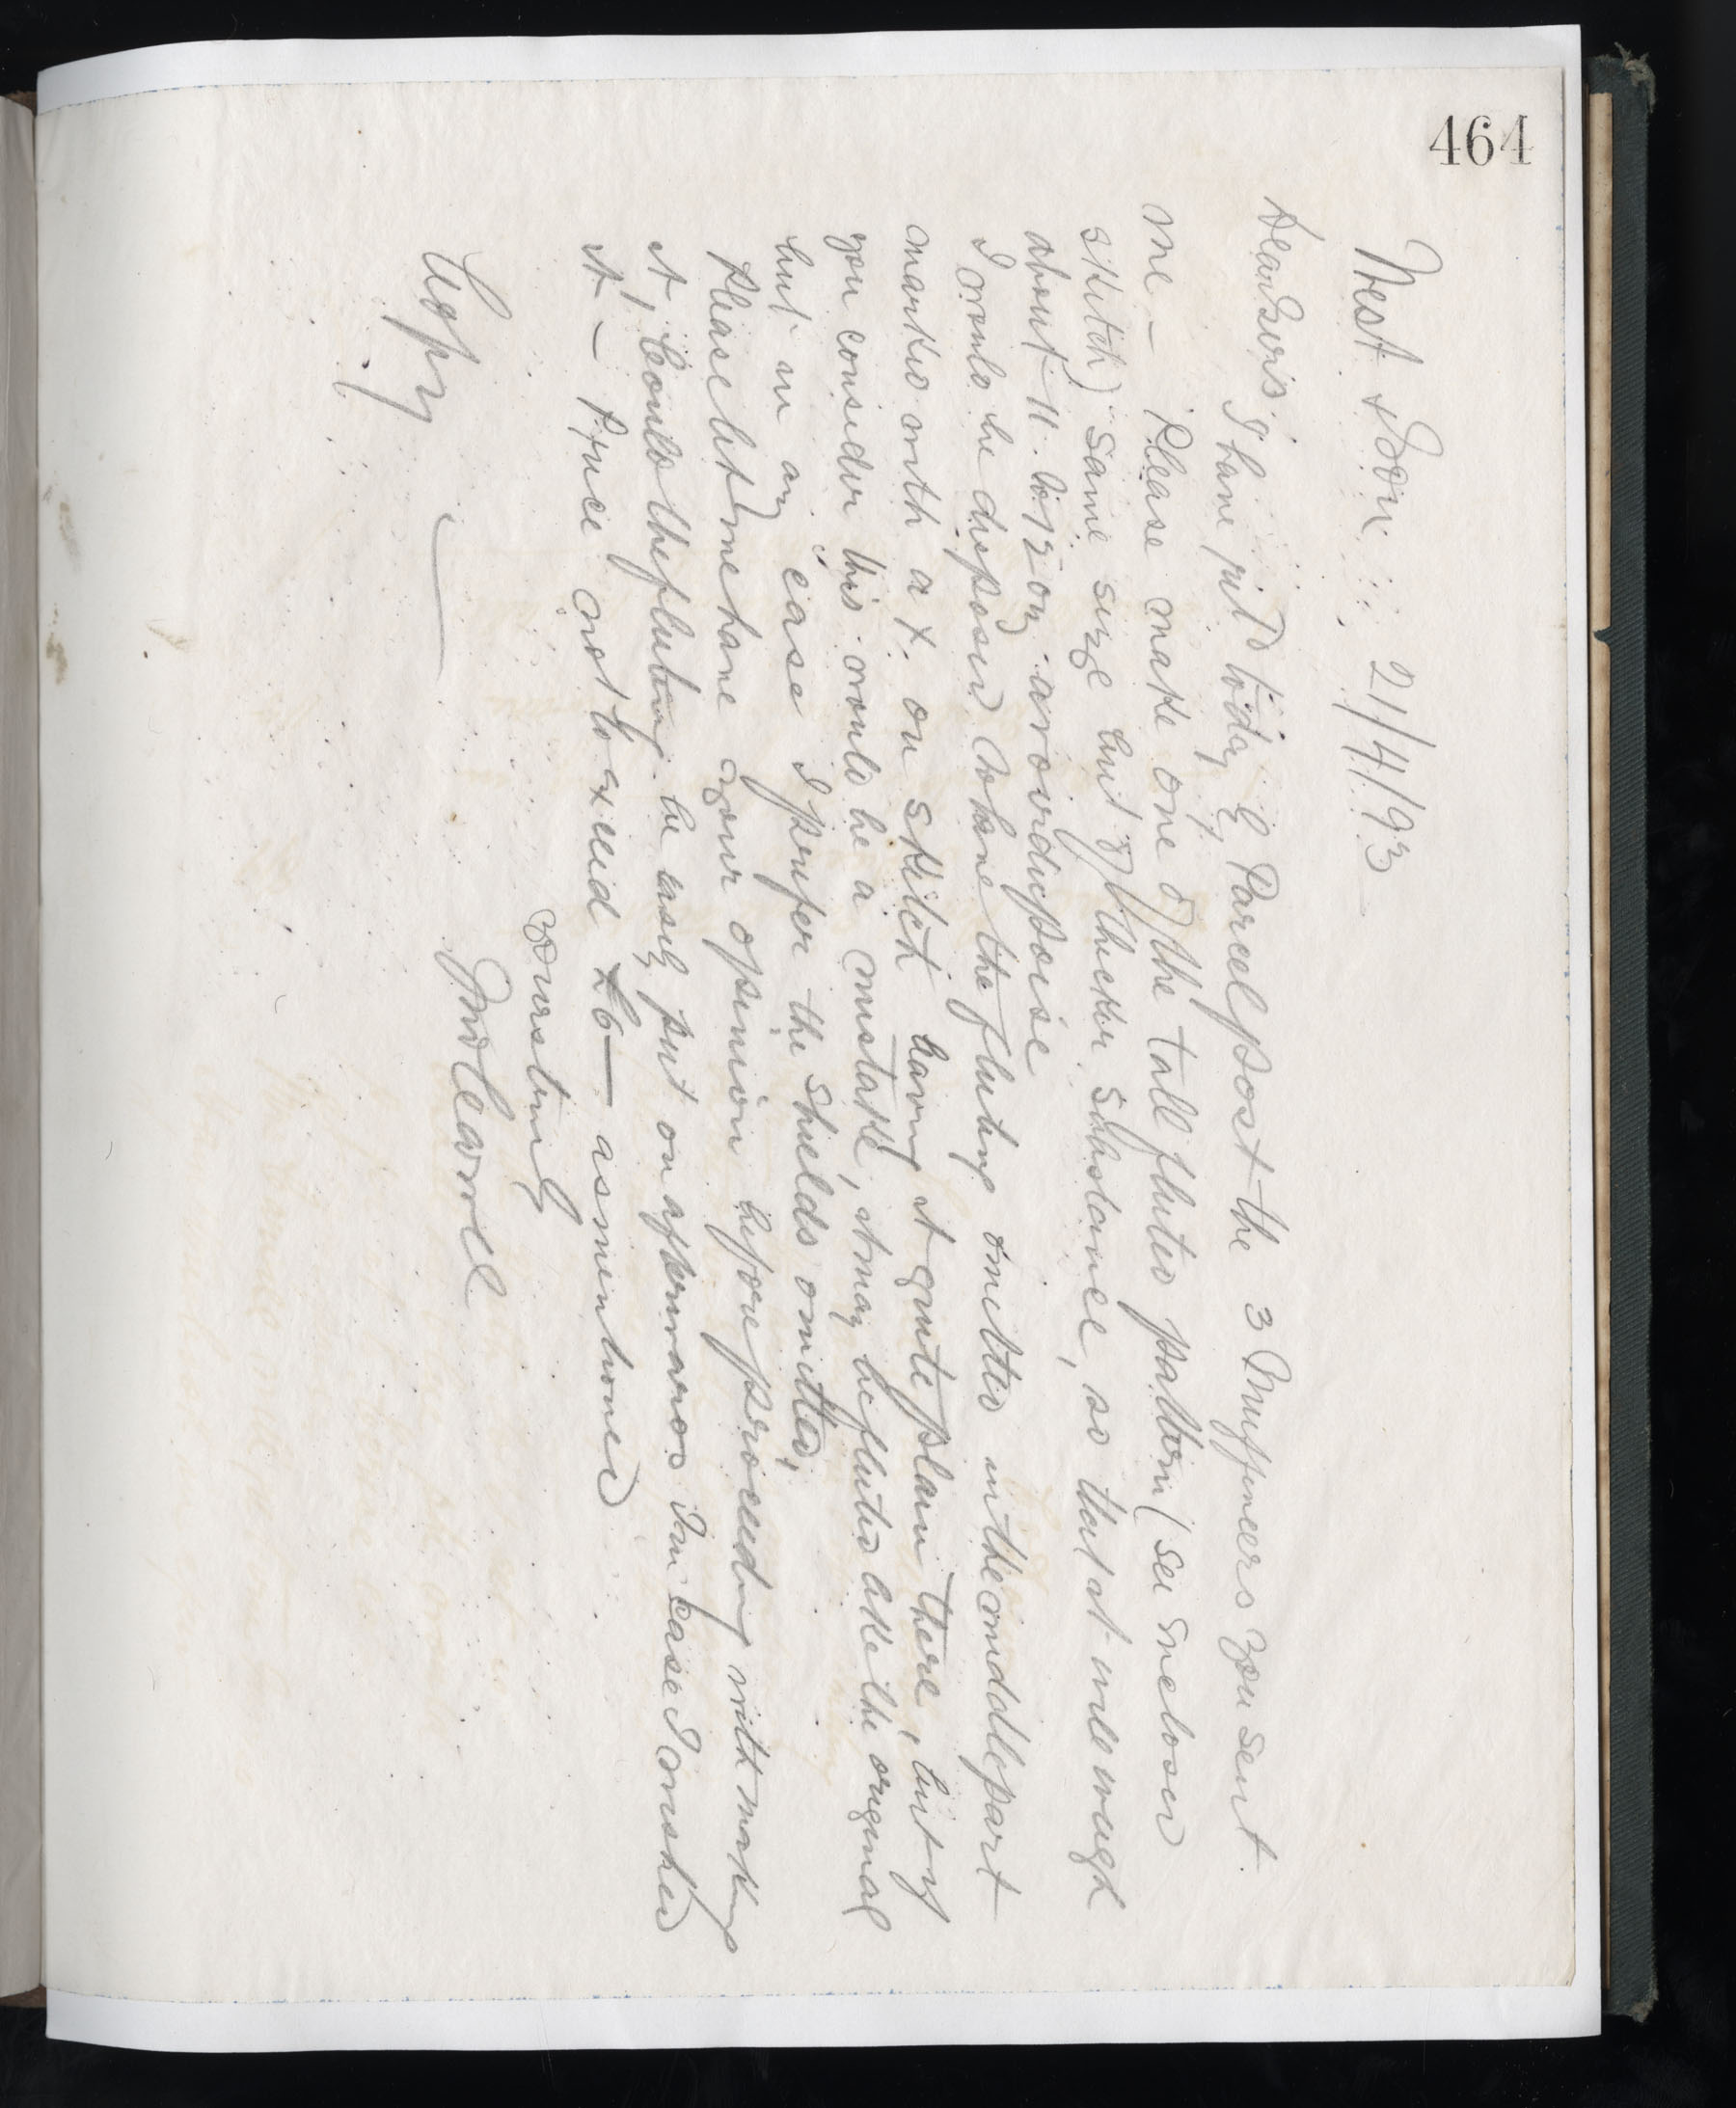 464
West & Son 21/4/93
Dear Sirs,
I have rec'd today by Parcel post the 3 Muffineers you sent
me — Please make one of the tall fluted pattern (see enclosed
sketch) same size but of thicker substance, so that it will weigh
about 11. to 12 oz avoirdupoise
I would be disposed to have the fluting omitted in the middle part
marked with a X. on sketch having it quite plain there, but if
you consider this would be a mistake, it may be fluted like the original
but in any case I prefer the shields omitted,
Please let me have your opinion before proceeding with making
it, Could the fluting be easily put on afterwards in case I wished
it — Price not to exceed £6— as mentioned
yours truly
Copy